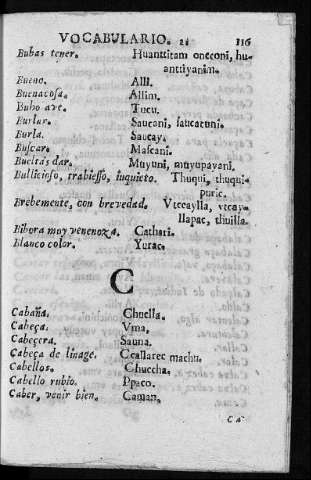 VOCABULARIO. 116
Bubas tener. Huanttitam oncconi, hu-
anttiyanim.
Bueno. Alli.
Buenacosa. Allim.
Buho ave. Tucu.
Burlar. Saucani, saucacuni.
Burla. Saucay.
Buscar. Mascani.
Bueltas dar. Muyuni, muyupayani.
Bullicioso, traviesso, inquieto. Thuqui, thuqui-
puric.
Brebemente, con brevedad. Vtccaylla, vtcay-
llapac,
Bibora muy venenoza. Cathari.
Blanco color. Yurac.
C
Cabaña. Chuclla.
Cabeça. Vma.
Cabeçera. Sauna.
Cabeça de linage. Ccallarec machu.
Cabellos. Chuccha.
Cabello rubio. Ppaco.
Caber, venir bien. Caman.
Ca-